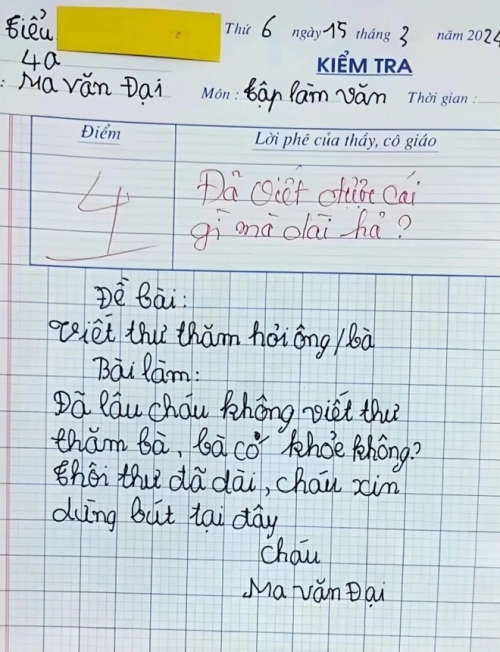 Tiểu
Thứ 6 ngày 15 tháng 3 năm 2024
4a
KIỂM TRA
: Ma Văn Đại Môn : Tập làm văn Thời gian :
Điểm Lời phê của thầy, cô giáo
4 Đã viết được cái
gì mà dài hả?
Đề bài:
Viết thư thăm hỏi ông/bà
Bài làm:
Đã lâu cháu không viết thư
thăm bà, bà có khỏe không?
Thôi thư đã dài, cháu xin
dừng bút tại đây
Cháu
Ma Văn Đại